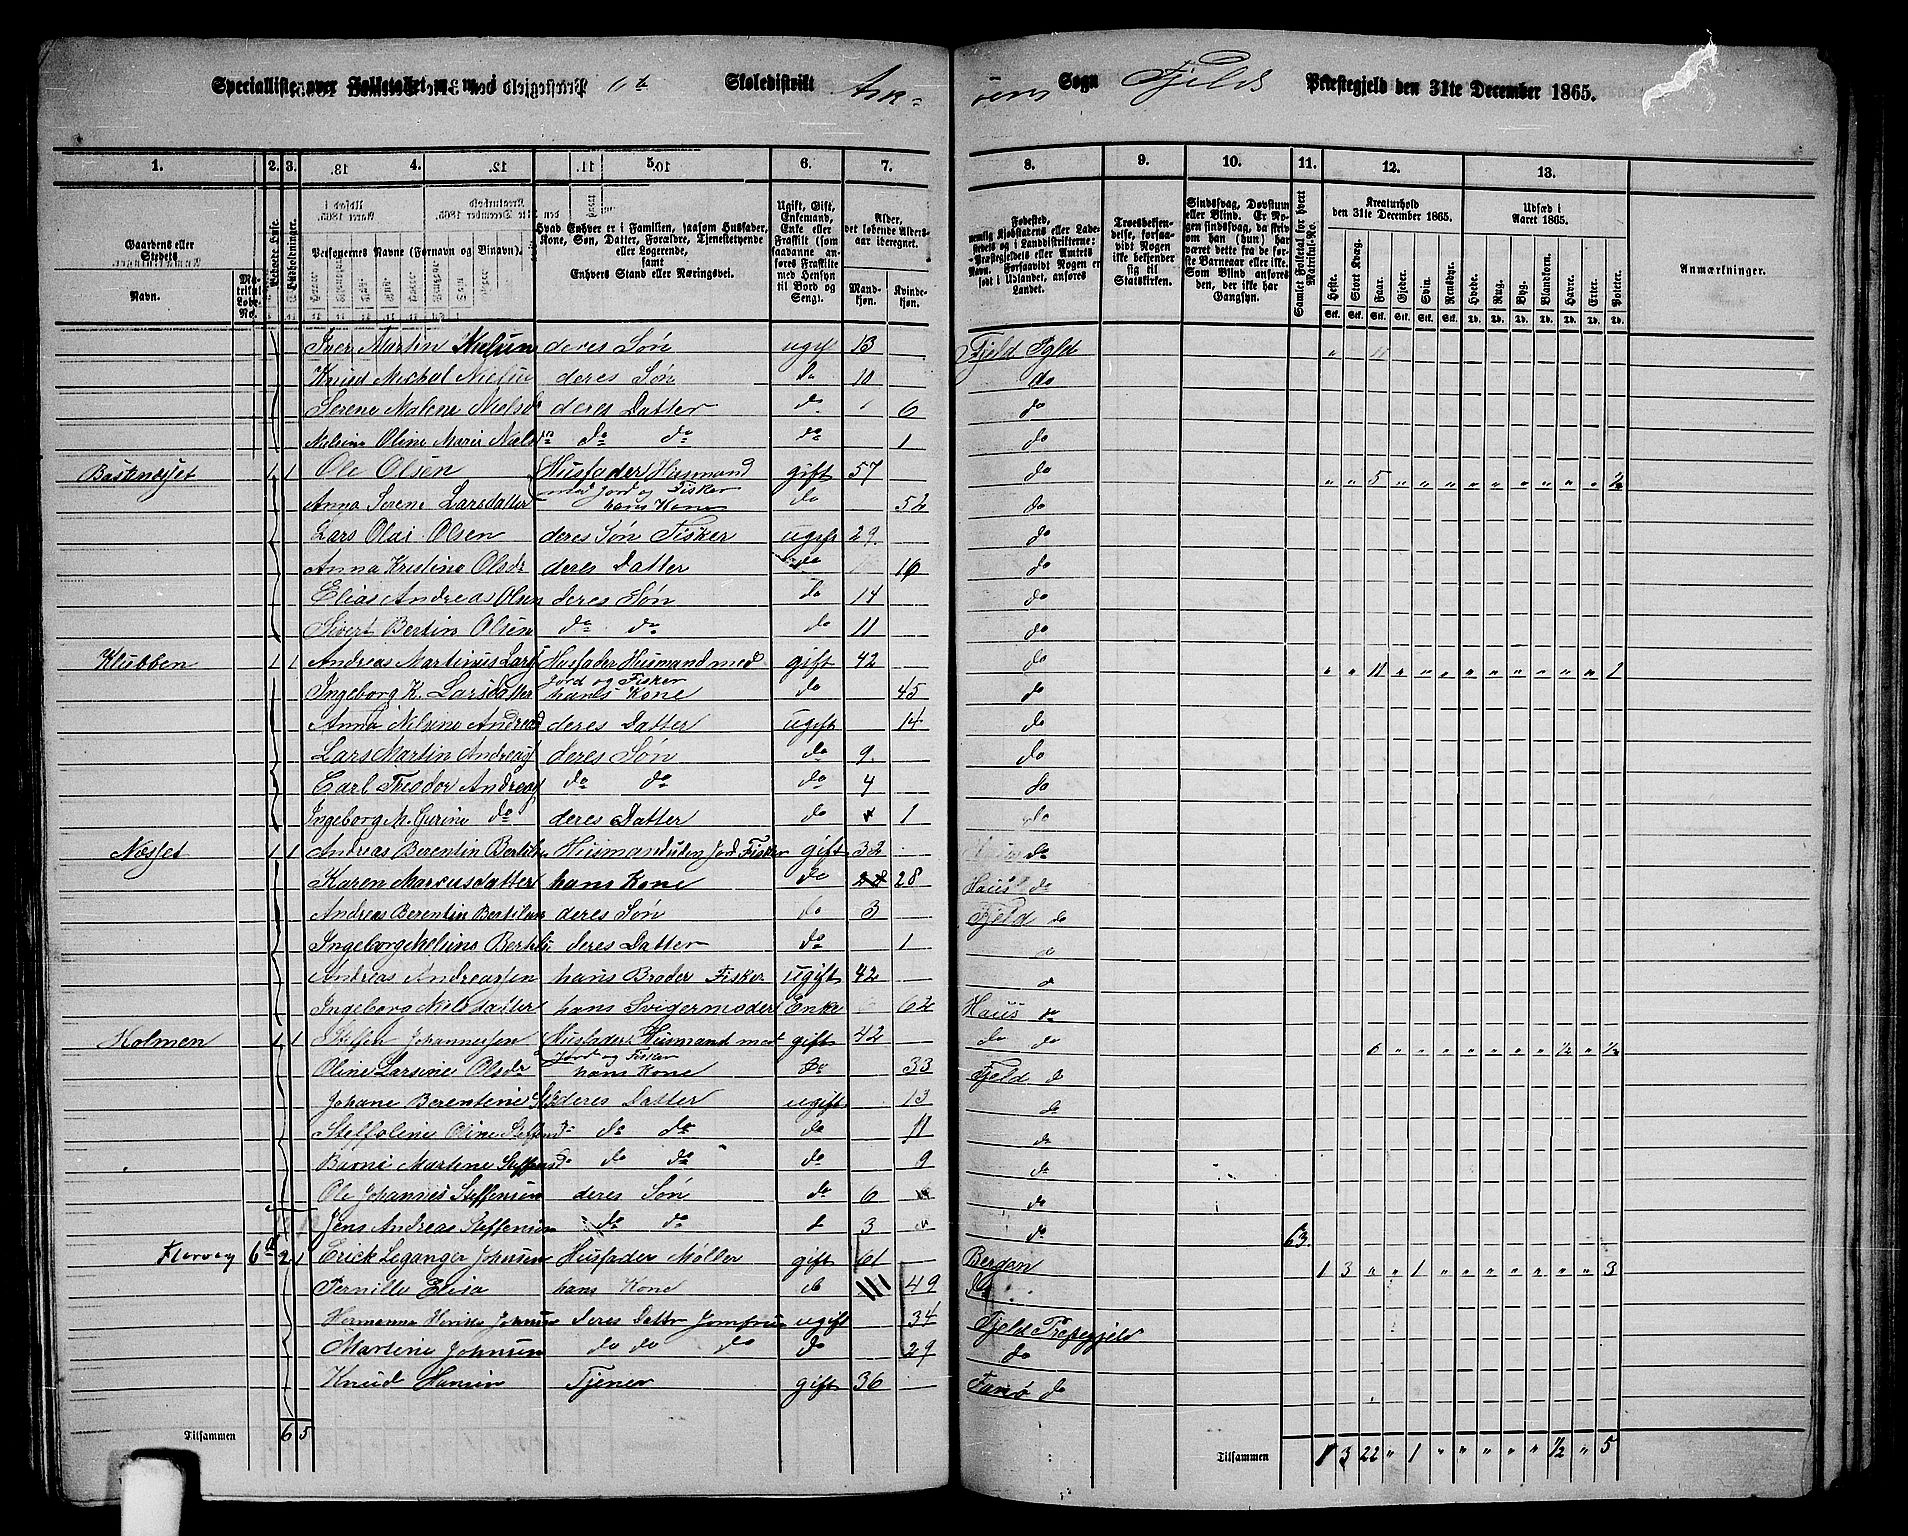 Specialliste over Folketallet m. m. i 6te Skoledistrikt Ask-
øens Sogn Fjelds Præstegjeld den 31te December 1865.
1. 2. 3. 4. 5. 6. 7. 8. 9. 10. 11. 12. 13.
Gaardens eller Stedets
Navn. Matrikul Løbe-No.
Beboede Huse.
Husholdninger.
Personernes Navne (Fornavn og Tilnavn).
Hvad Enhver er i Familien, saasom Husfader, Kone, Søn, Datter, Forældre, Tjenestetyende eller Logerende, samt Enhvers Stand eller Næringsvei.
Ugift, Gift, Enkemand, Enke eller Fraskilt (som saadanne anføres Fraskilte med Hensyn til Bord og Seng).
Alder, det løbende Alders-aar iberegnet.
Mand-kjøn. Kvinde-kjøn.
Fødested,
Troesbekjendelse, forsaavidt Nogen ikke bekjender sig til Statskirken.
Sindssvag, Døvstum eller Blind. Er Nogen sindssvag, da skrives om han (hun) har været dette fra de første Barneaar eller ei. Som Blind anføres den, der ikke har Gangsyn.
Samlet Folketal for hvert Matrikul-No.
Kreaturhold den 31te December 1865.
Heste. Stort Kvæg. Faar. Gjeder. Svin. Rensdyr.
Udsæd i Aaret 1865.
Hvede. Rug. Byg. Blandkorn. Havre. Erter. Poteter.
Anmærkninger.
Iver Martin Nielsen deres Søn ugift 13 Fjeld Pgld
Knud Michal Nielsen deres Søn do 10 do
Serene Malene Nielsd deres Datter do 6 do
Nelsine Oline Marie Nielsdn do do do 1 do
Ole Olsen Husfader Husmand gift 57 do " " 5 " " " " " " " " " ½
med Jord og Fisker
Anna Serene Larsdatter hans Kone do 52 do
Lars Olai Olsen deres Søn Fisker ugift 29 do
Anna Kristine Olsdr deres Datter do 16 do
Elias Andreas Olsen deres Søn do 14 do
Sivert Bertin Olsen do do do 11 do
Klubben 1 1 Andreas Martinus Lars Husfader Husmand med gift 42 do " " 11 " " " " " " " " " 1
Jord og Fisker
Ingeborg K. Larsdatter hans Kone do 45 do
Anna Nelsine Andread deres Datter ugift 14 do
Lars Martin Andreas deres Søn do 9 do
Carl Theodor Andreas do do do 4 do
Ingeborg M. Gurine do deres Datter do 1 do
Næsset 1 1 Andreas Berentin Bertels Husmand uden Jord Fisker gift 32 do
Karen Marcusdatter hans Kone do 28 Haus do
Andreas Berentin Bertelsen deres Søn do 3 Fjeld do
Ingeborg Nelsine Bertels deres Datter do 1 do
Andreas Andreassen hans Broder Fisker ugift 42 do
Ingeborg Nielsdatter hans Svigermoder Enke 62 Haus do
Holmen 1 1 Steffen Johannessen Husfader Husmand med gift 42 do do 6 " " " " " " " ½ " ½
Jord og Fisker
Oline Larsine Olsdr hans Kone do 33 Fjeld do
Johane Berentine Ste deres Datter ugift 13 do
Steffoline Oline Steffensd do do do 11 do
Martine Steffensd do do do 9 do
Ole Johannes Steffensen deres Søn do 6 do
Jens Andreas Steffensen do do d 3 do 63
Florvæg 6a 2 1 Erick Leganger Johnsen Husfader Møller gift 61 Bergen 1 3 " " 1 " " " " " " " 3
Pernille Elisa hans Kone do 49 do
Hermanna Johnsen deres Datter Jomfru ugift 34 Fjeld Præstegjeld
Martine Johnsen do do do do 29 do
Knud Hansen Tjener gift 36 Fanø do
Tilsammen 6 5 Tilsammen 1 3 22 " 1 " " " " " ½ " 5